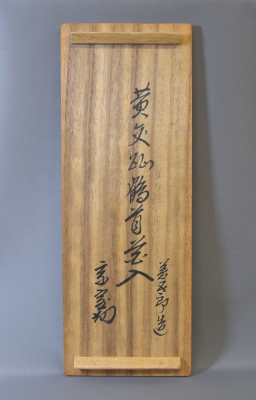 黄交趾鶴首花入
善五郎造